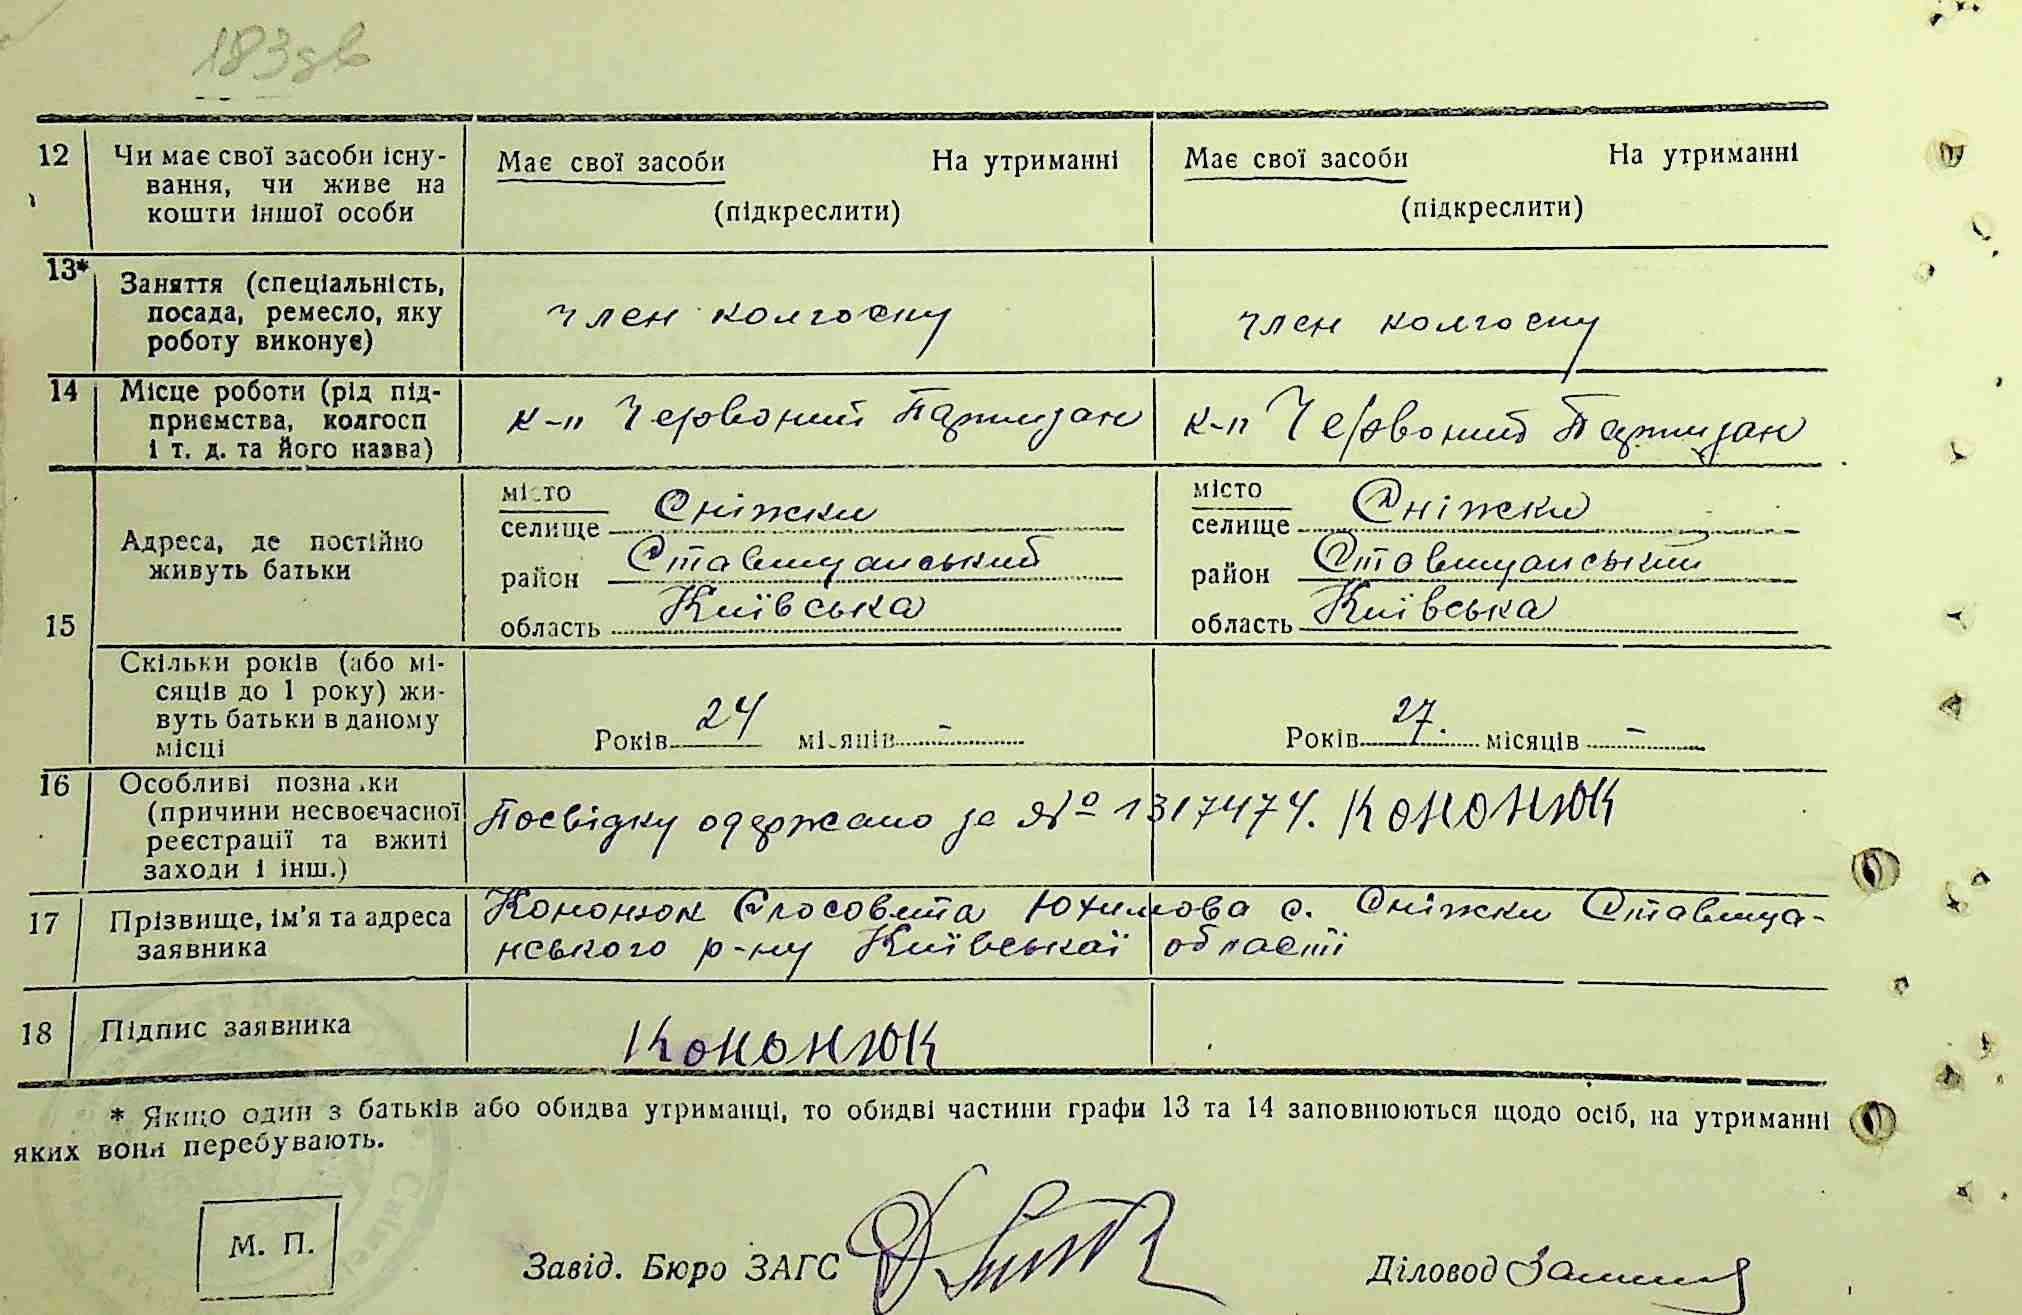 183зв
12 Чи має свої засоби існу-
вання, чи живе на
кошти іншої особи
Має свої засоби На утриманні
(підкреслити)
Має свої засоби На утриманні
(підкреслити)
13* Заняття (спеціальність,
посада, ремесло, яку
роботу виконує)
член колгоспу
член колгоспу
14 Місце роботи (рід під-
приємства, колгосп
і т. д. та його назва)
к-п Червоний Партизан
к-п Червоний Партизан
15
Адреса, де постійно
живуть батьки
місто
селище Сніжки
район Ставищанський
область Київська
місто
селище Сніжки
район Ставищанський
область Київська
Скільки років (або мі-
сяців до 1 року) жи-
вуть батьки в даному
місці
Років 24 місяців -
Років 27. місяців -
16 Особливі познаки
(причини несвоєчасної
реєстрації та вжиті
заходи і інш.)
Посвідку одержано за № 1317474. Кононюк
17 Прізвище, ім'я та адреса
заявника
Кононюк Єлосовета Юхимова с. Сніжки Ставища-
нського р-ну Київської області
18 Підпис заявника
Кононюк
* Якщо один з батьків або обидва утриманці, то обидві частини графи 13 та 14 заповнюються щодо осіб, на утриманні
яких вони перебувають.
М. П.
Завід. Бюро ЗАГС
Діловод